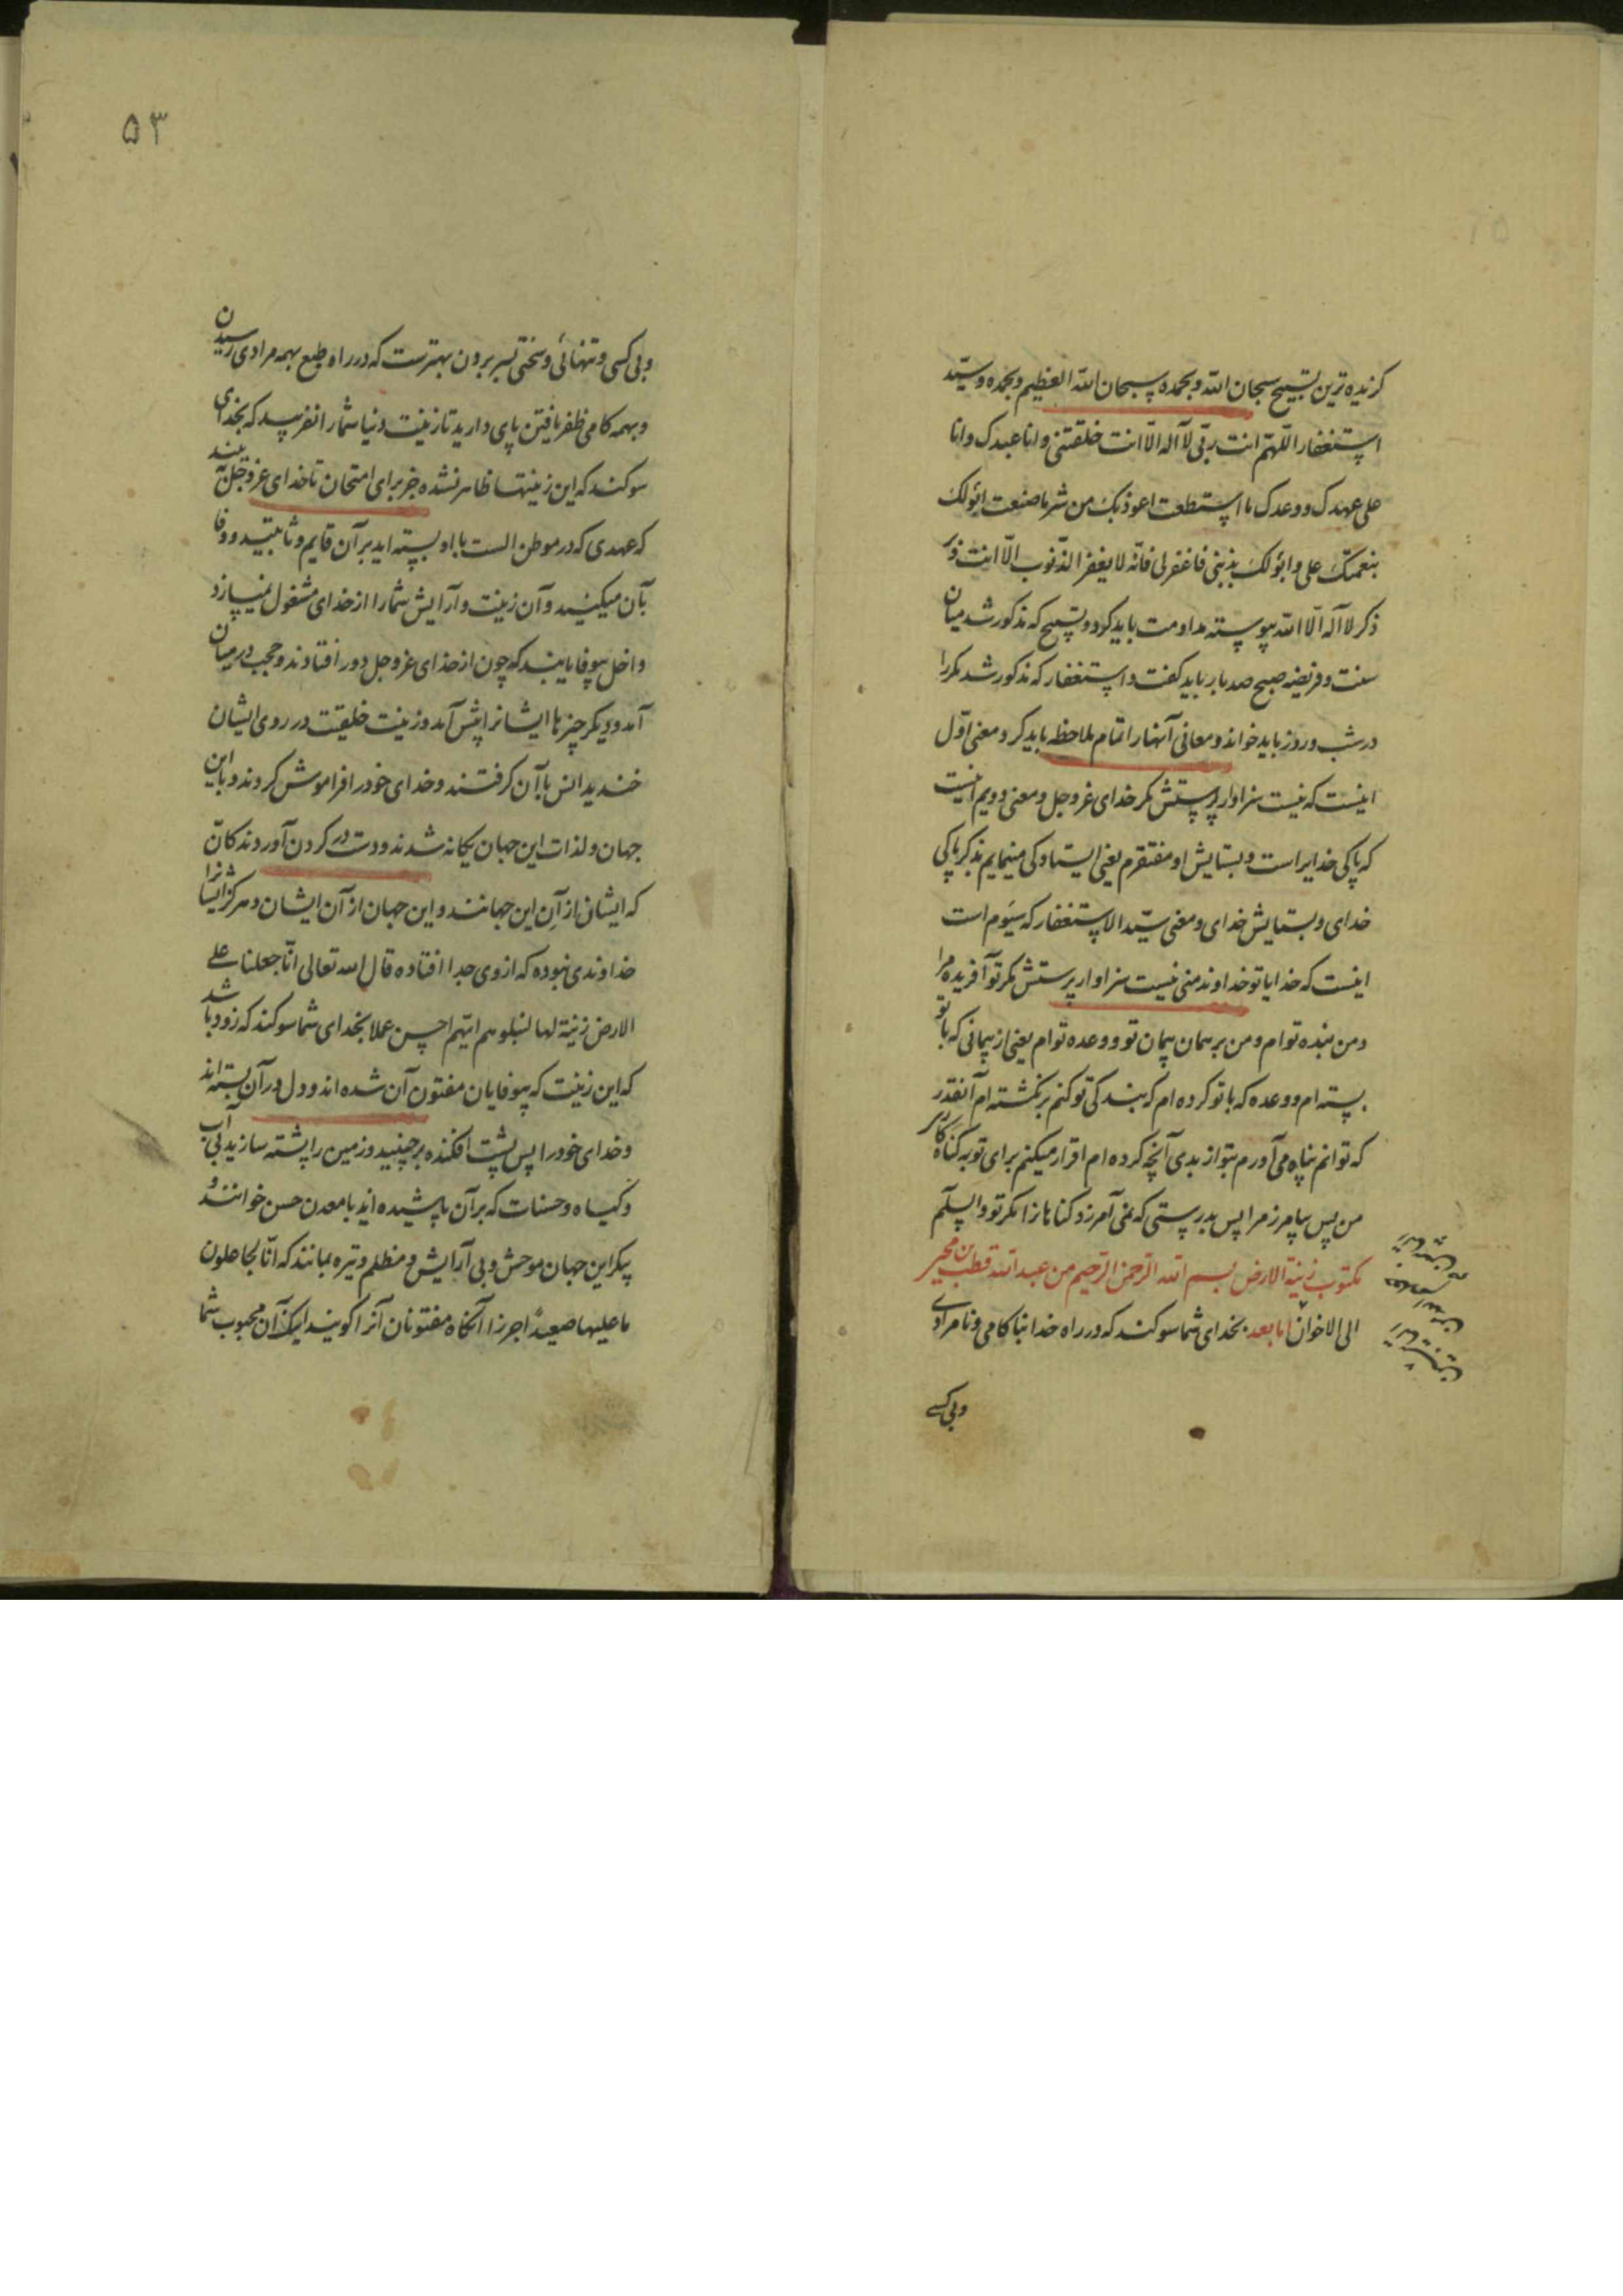 کزیده ترین تسبیح سبحان الله وبحمده سبحان الله العظیم وبحمده وسید
استغفار اللهم انت ربی لا اله الا انت خلقتنی وانا عبدک وانا
علی عهدک ووعدک ما استطعت اعوذ بک من شر ما صنعت ابوء لک
بنعمتک علی وابوء لک بذنبی فاغفر لی فانه لا یغفر الذنوب الا انت
ذکر لا اله الا الله پیوسته مداومت باید کرد وتسبیح که مذکور شد میان
سنت وفریضه صبح صد بار باید کفت واستغفار که مذکور شد مکررا
در شب وروز باید خواند ومعانی آنها را تمام ملاحظه باید کرد ومعنی اول
اینست که نیست سزاوار پرستش مکر خدای عزوجل ومعنی دویم اینست
که پاکی خدایراست وبستایش او مفتقرم یعنی ایستادکی مینمایم بذکر پاکی
خدای وبستایش خدای ومعنی سید الاستغفار که سیوم است
اینست که خدایا تو خداوند منی نیست سزاوار پرستش مکر تو آفریده مرا
ومن بنده توام ومن بر همان پیمان تو ووعده توام یعنی از پیمانی که با تو
بسته ام ووعده که با تو کرده ام که بندکی تو کنم برنکشته ام آنقدر
که توانم پناه می آورم بتو از بدی آنچه کرده ام اقرار میکنم برای تو بکناه
من پس بیامرز مرا پس بدرستی که نمی آمرزد کناهانرا مکر تو والسلم
مکتوب زینة الارض بسم الله الرحمن الرحیم من عبد الله قطب بن محیی
الی الاخوان اما بعد بخدای شما سوکند که در راه خدا بناکامی ونامرادی
وبی کسی
۵۳
وبی کسی وتنهائی وسختی بسر بردن بهترست که در راه طبع بهمه مرادی رسیدن
وبهمه کامی ظفر یافتن پای دارید تا زینت دنیا شما را نفریبد که بخدای
سوکند که این زینتها ظاهر نشده جز برای امتحان تا خدای عزوجل بیند
که عهدی که در موطن الست با او بسته اید بر آن قایم وثابتید ووفا
بآن میکنید وآن زینت وآرایش شما را از خدای مشغول نمیسازد
واخل بیوفایانید که چون از خدای عزوجل دور افتادند وحجب در میان
آمد ودیکر چیزها ایشانرا پیش آمد وزینت خلیقت در روی ایشان
خندید انس بآن کرفتند وخدای خود را فراموش کردند وباین
جهان ولذات این جهان یکانه شدند ودست در کردن آوردند کان
که ایشان از آن این جهانند واین جهان از آن ایشان وهرکز ایشانرا
خداوندی نبوده که از وی جدا افتاده قال الله تعالی انا جعلنا ما علی
الارض زینة لها لنبلوهم ایهم احسن عملا بخدای شما سوکند که زود باشد
که این زینت که بیوفایان مفتون آن شده اند ودل در آن بسته اند
وخدای خود را پس پشت افکنده برچنید وزمین را پشته سازید بی آب
وکیاه وحسنات که بر آن پاشیده اید با معدن حسن خوانند و
پیکر این جهان موحش وبی آرایش ومظلم وتیره بماند که انا لجاعلون
ما علیها صعیدا جرزا آنکاه مفتونان آنرا کویند اینک آن محبوب شما